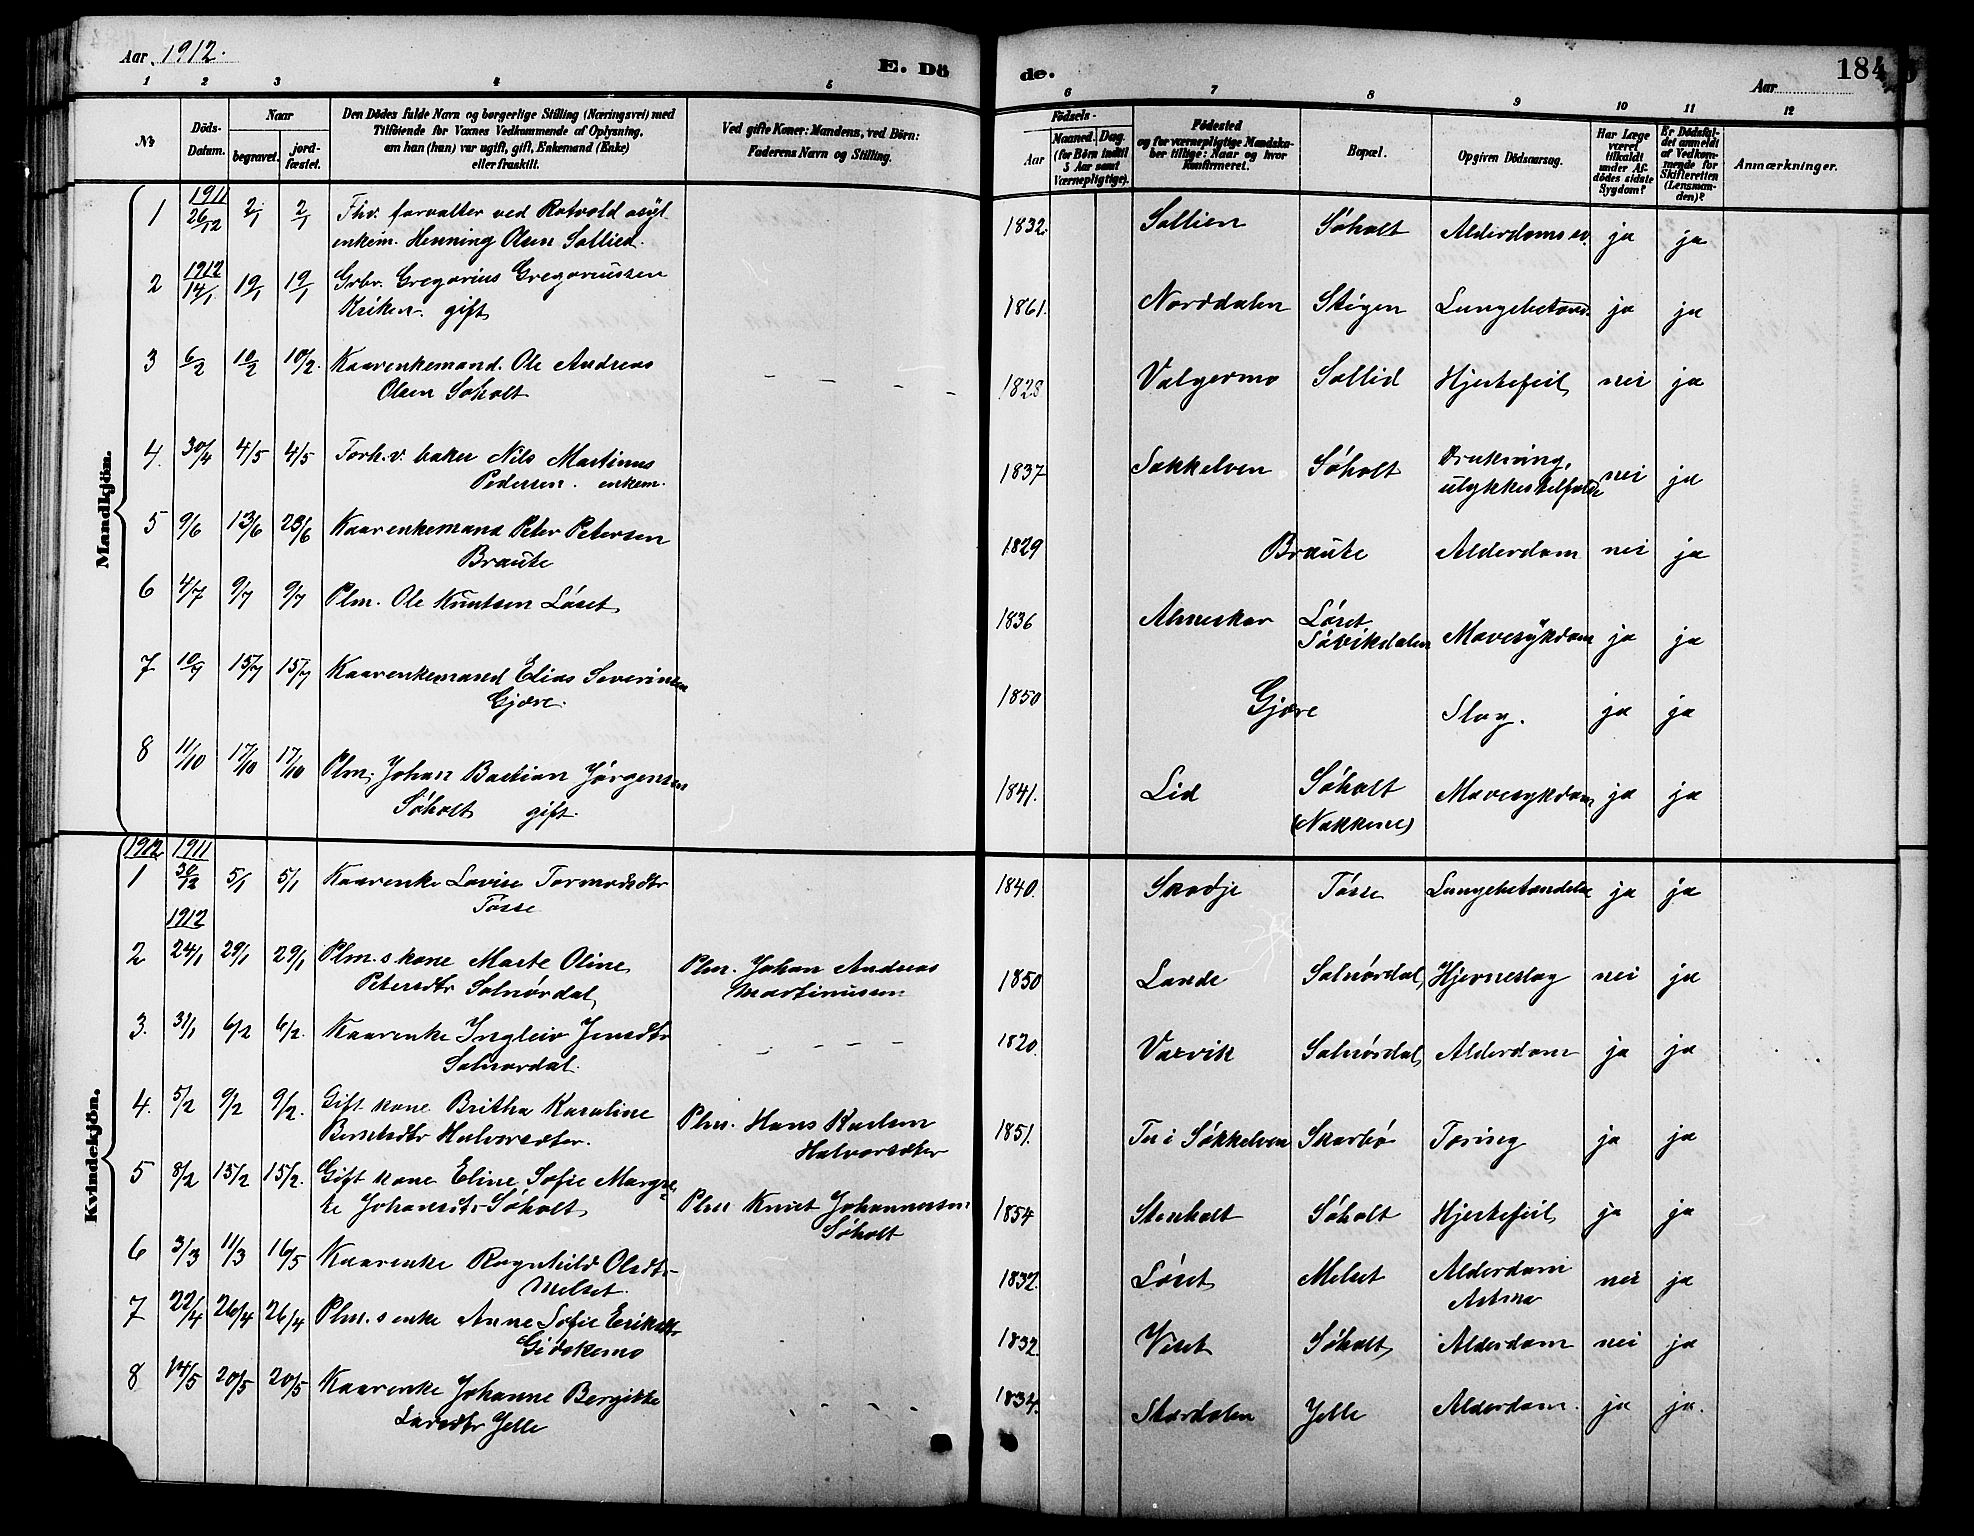 Aar 1912.
E. Dö
de.
Aar
184
1 2 3 4 5 6 7 8 9 10 11 12
No.
Döds-Datum.
Naar
begravet.
jord-fæstet.
Den Dödes fulde Navn og borgerlige Stilling (Næringsvei) med
Tilföiende for Voxnes Vedkommende af Oplysning,
om han (hun) var ugift, gift, Enkemand (Enke)
eller fraskilt.
Ved gifte Koner: Mandens, ved Börn:
Faderens Navn og Stilling.
Födsels-
Aar
Maaned. Dag.
(for Börn indtil
5 Aar samt
Værnepligtige).
Födested
og for værnepligtige Mandska-
ber tillige: Naar og hvor
konfirmeret.
Bopæl.
Opgiven Dödsaarsag.
Har Læge
været
tilkaldt
under Af-
dödes sidste
Sygdom?
Er Dödsfal-
det anmeldt
af Vedkom-
mende for
Skifteretten
(Lensman-
den)?
Anmærkninger.
Mandkjön.
1 1911 26/12 2/1 2/1 Fhv. forvalter ved Rotvold asyl
enkem. Henning Olsen Sollied. 1832. Sollien Søholt Alderdomssv. ja ja
2 1912 14/1 19/1 19/1 Grbr. Gregorius Gregoriussen
Kriken gift 1861. Norddalen Stigen Lungebetænd. ja ja
3 6/2 10/2 10/2. Kaarenkemand. Ole Andreas
Olsen Søholt – – – – 1828 Valgermo Sollid Hjertefeil nei ja
4. 30/4 4/5 4/5 Forh.v. baker Nils Martinus
Pedersen. enkem. 1837 Søkkelven Søholt Drukning,
ulykkestilfælde nei ja
5 9/6 13/6 23/6 Kaarenkemand Peter Petersen
Braute 1829 Braute Alderdom nei ja
6 4/7 9/7 9/7 Plm. Ole Knutsen Løset 1836 Almeskar Løset
Søvikdalen Mavesykdom ja ja
7 10/7 15/7 15/7 Kaarenkemand Elias Severinsen
Gjære. 1850 Gjære Slag. ja ja
8 11/10 17/10 17/10 Plm. Johan Bastian Jørgensen
Søholt gift. 1841. Lid Søholt
(Nakkene) Mavesykdom ja ja
Kvindekjön.
1912 1911
1 30/12 5/1 5/1 Kaarenke Lovise Tormodsdtr
Tøsse 1840. Skodje Tøsse Lungebetændelse ja ja
1912
2 24/1 29/1 29/1 Plm.s kone Marte Oline
Petersdtr Solnørdal Plm. Johan Andreas
Martinussen 1850 Lande Solnørdal Hjerneslag nei ja
3. 31/1 6/2 6/2. Kaarenke Ingleiv Jensdtr
Solnørdal. – – – – 1820. Vaxvik Solnørdal Alderdom ja ja
4. 5/2 9/2 9/2. Gift kone Britha Karoline
Berntsdtr Halvorsæter. Plm. Hans Karlsen
Halvorsæter 1851. Tu i Søkkelven Skarbø Tæring ja ja
5 8/2 15/2 15/2. Gift kone Eline Sofie Margre-
te Johansdtr Søholt Plm Knut Johannessen
Søholt 1854 Stenholt Søholt Hjertefeil ja ja
6 3/3 11/3 16/5 Kaarenke Ragnhild Olsdtr
Melset. 1832. Løset Melset Alderdom
Astma nei ja
7 22/4 26/4 26/4 Plm.s enke Anne Sofie Eriksdtr
Gidskemo 1832. Viset Søholt Alderdom nei ja
8 14/5 20/5 20/5 Kaarenke Johanne Bergitte
Larsdtr Jelle – – – – 1834. Stordalen Jelle Alderdom. ja ja.